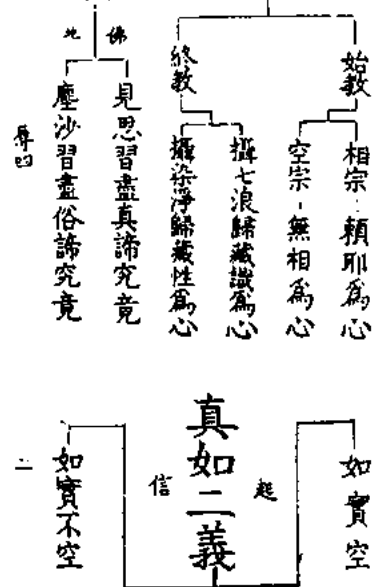 始教
相宗－賴耶為心
空宗－無相為心
終教
攝七浪歸藏識為心
攝染淨歸藏性為心
佛地
見思習盡真諦究竟
塵沙習盡俗諦究竟
真如二義
起信
如實空
如實不空
二